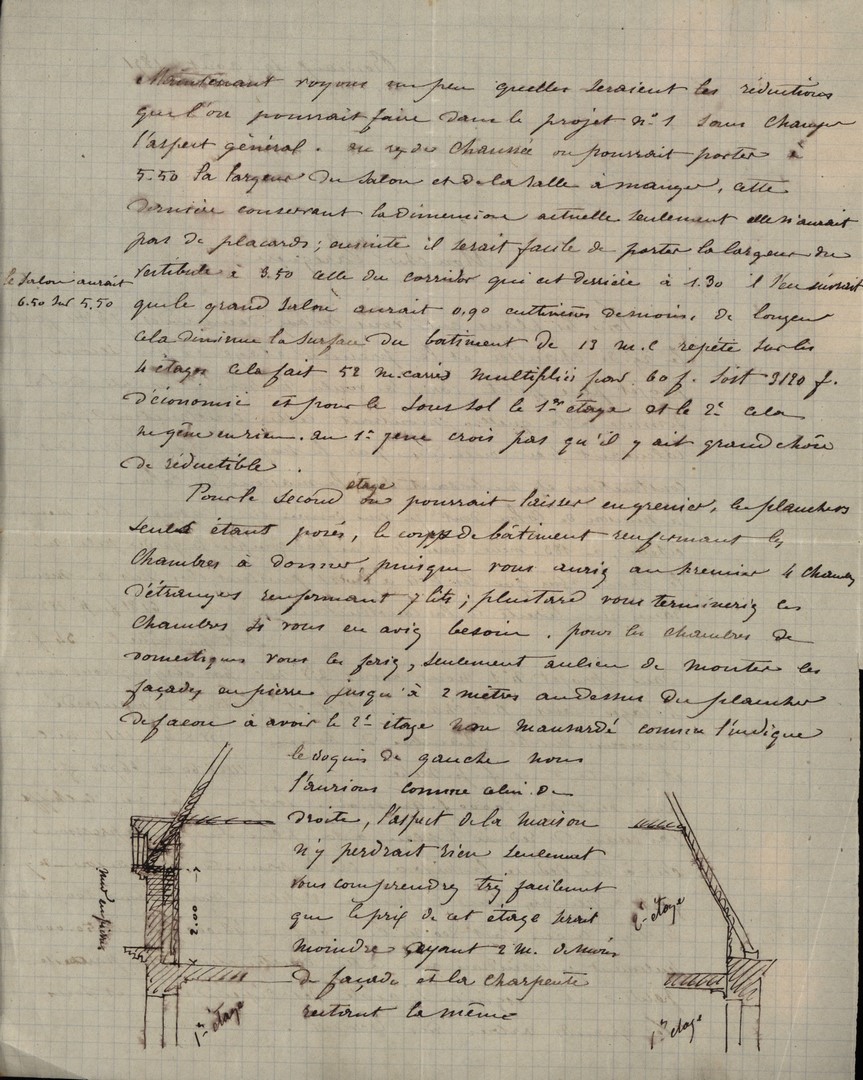 Maintenant voyons un peu quelles seraient les réductions
que l'on pourrait faire dans le projet n° 1 sans changer
l'aspect général. au rez de chaussé on pourrait porter à
5.50 la largeur du salon et de la salle à manger, cette
dernière conservant la dimension actuelle seulement elle n'aurait
pas de placards ; ensuite il serait facile de porter la largeur du
vestibule à 3.50 celle du corridor qui est derrière à 1.30 il s'en suivrait
le salon aurait
6.50 sur 5.50
que le grand salon aurait 0,90 centimètres de moins, de longeur
cela diminue la surface du bâtiment de 13 m. c répété sur les
4 étages cela fait 52 m. carrés multipliés par 60 f. soit 3120 f.
d'économie et pour le sous sol le 1er étage et le 2e cela
ne gêne en rien. au 1er je ne crois pas qu'il y ait grand chose
de réductible.
Pour le second étage on pourrait laisser en grenier, les planchers
seuls étant posés, le corps de bâtiment renfermant les
chambres à donner, puisque vous auriez au premier 4 chambres
d'étrangers renfermant 7 lits ; plus tard vous termineriez les
chambres si vous en aviez besoin. pour les chambres de
domestiques vous les feriez, seulement au lieu de monter les
façades en pierre jusqu'à 2 mètres au dessus du plancher
de facon à avoir le 2e étage non mansardé comme l'indique
le croquis de gauche nous
l'aurions comme celui de
droite, l'aspect de la maison
n'y perdrait rien seulement
vous comprendrez très facilement
que le prix de cet étage serait
moindre ayant 2 m. de moins
de façade et la charpente
restant la même
mur en pierres
2.00
1er étage
2e étage
1er étage